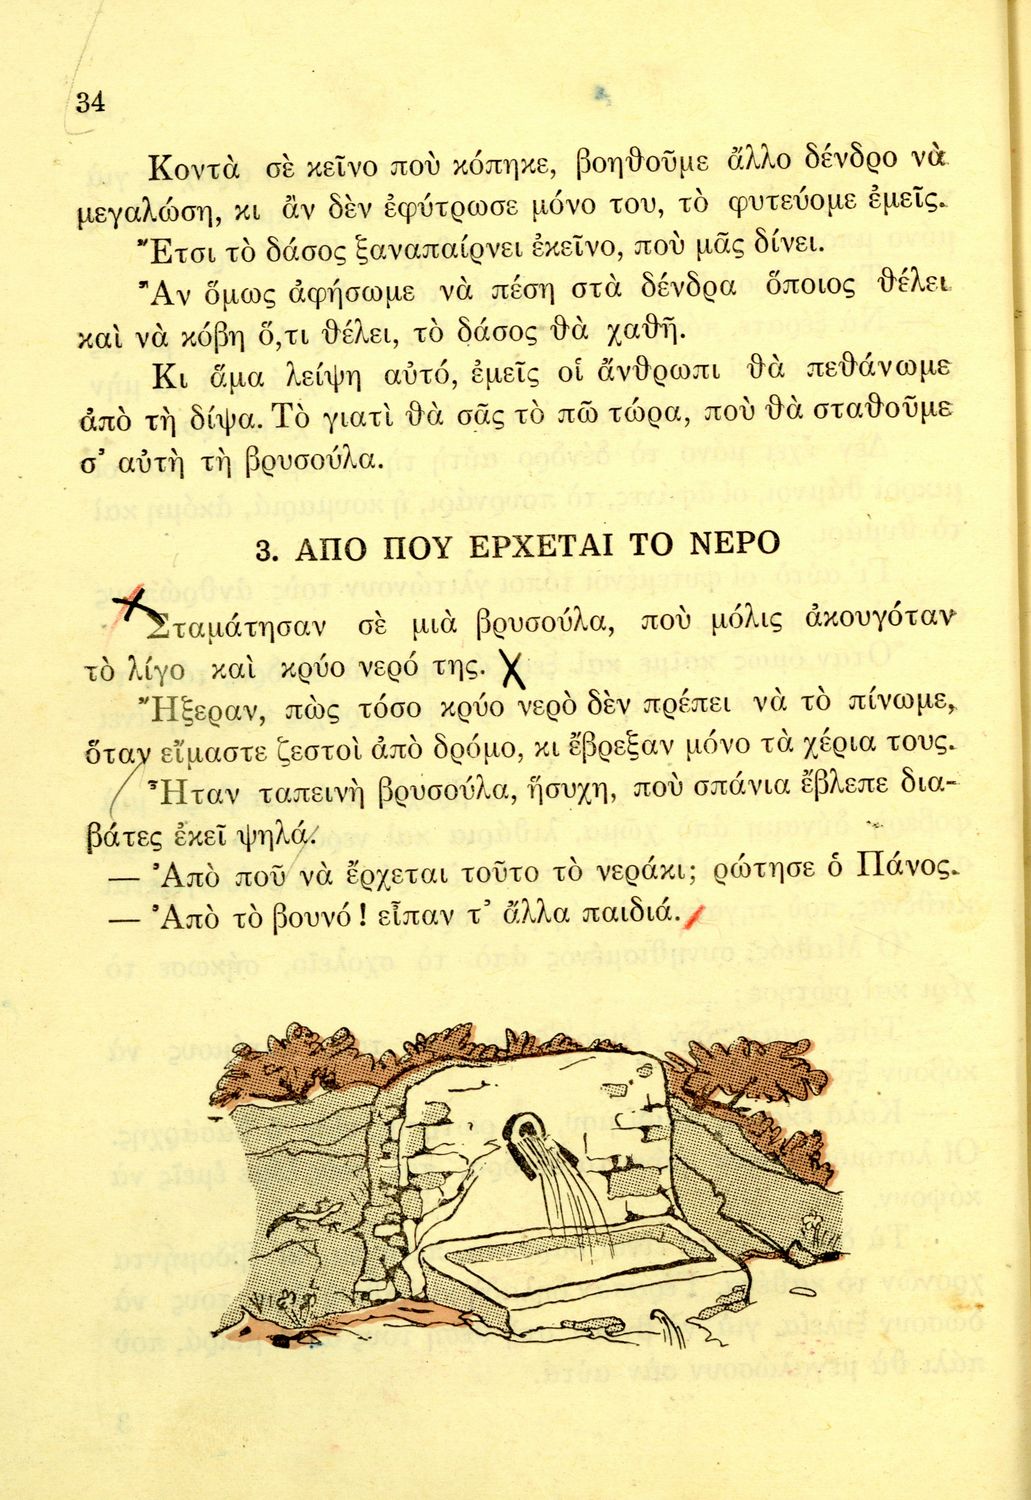 34
Κοντὰ σὲ κεῖνο ποὺ κόπηκε, βοηθοῦμε ἄλλο δένδρο νὰ
μεγαλώση, κι ἂν δὲν ἐφύτρωσε μόνο του, τὸ φυτεύομε ἐμεῖς.
Ἔτσι τὸ δάσος ξαναπαίρνει ἐκεῖνο, ποὺ μᾶς δίνει.
Ἂν ὅμως ἀφήσωμε νὰ πέση στὰ δένδρα ὅποιος θέλει
καὶ νὰ κόβη ὅ,τι θέλει, τὸ δάσος θὰ χαθῆ.
Κι ἅμα λείψη αὐτό, ἐμεῖς οἱ ἄνθρωπι θὰ πεθάνωμε
ἀπὸ τὴ δίψα. Τὸ γιατὶ θὰ σᾶς τὸ πῶ τώρα, ποὺ θὰ σταθοῦμε
σ’ αὐτὴ τὴ βρυσούλα.
3. ΑΠΟ ΠΟΥ ΕΡΧΕΤΑΙ ΤΟ ΝΕΡΟ
Σταμάτησαν σὲ μιὰ βρυσούλα, ποὺ μόλις ἀκουγόταν
τὸ λίγο καὶ κρύο νερό της.
Ἤξεραν, πὼς τόσο κρύο νερὸ δὲν πρέπει νὰ τὸ πίνωμε,
ὅταν εἴμαστε ζεστοὶ ἀπὸ δρόμο, κι ἔβρεξαν μόνο τὰ χέρια τους.
Ἦταν ταπεινὴ βρυσούλα, ἥσυχη, ποὺ σπάνια ἔβλεπε δια-
βάτες ἐκεῖ ψηλά.
— Ἀπὸ ποῦ νὰ ἔρχεται τοῦτο τὸ νεράκι; ρώτησε ὁ Πάνος.
— Ἀπὸ τὸ βουνό! εἶπαν τ’ ἄλλα παιδιά.